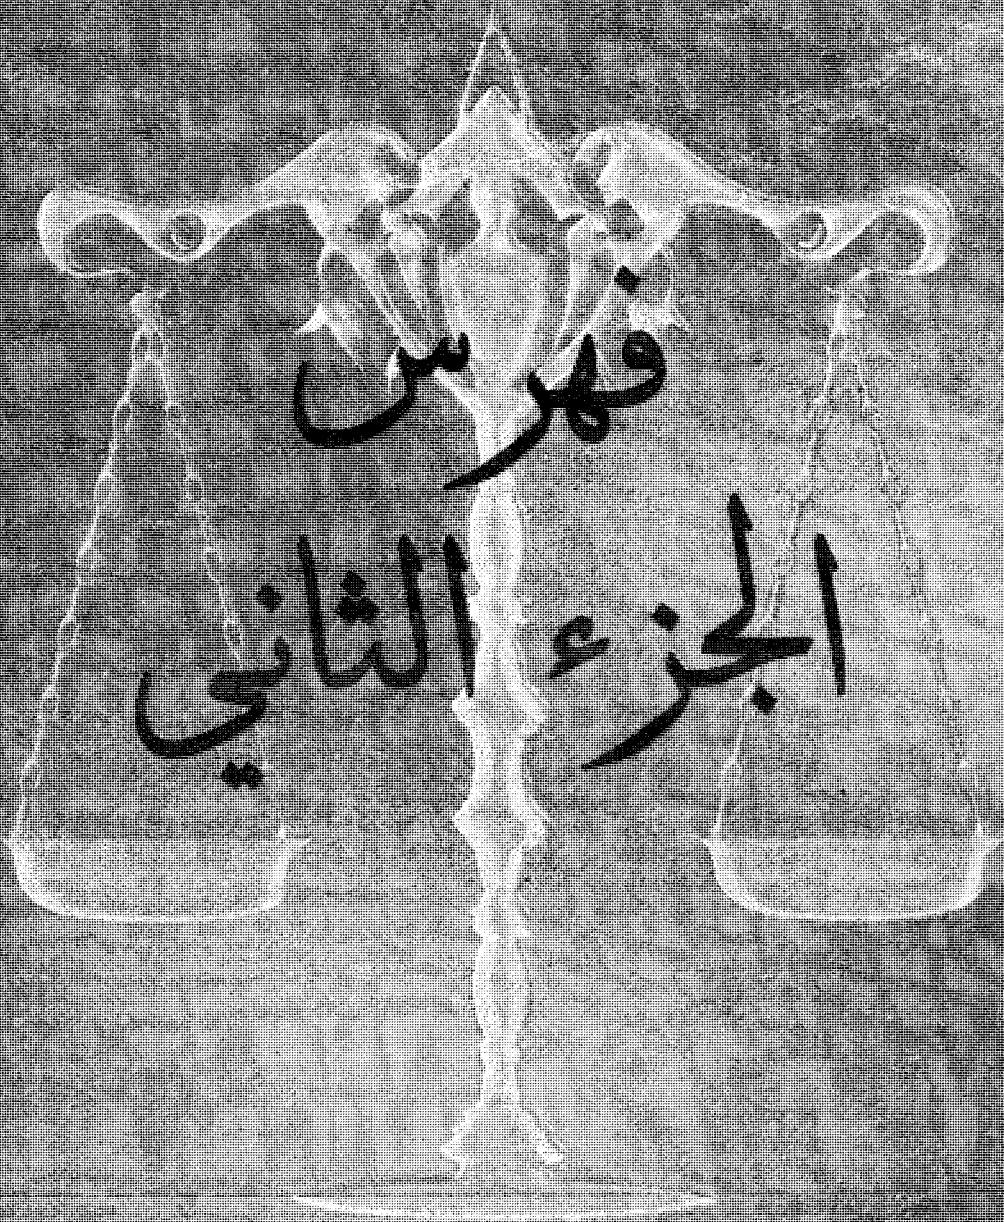 فهرس
الجزء الثاني